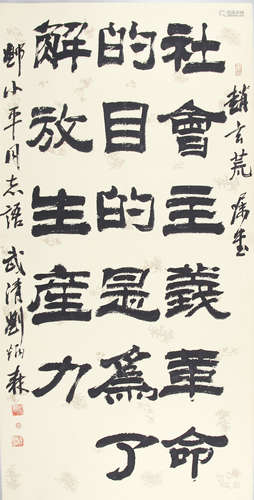 趙荒
社會主義革命
的目的是爲了
解放生産力
鄧小平同志語 武清劉炳森